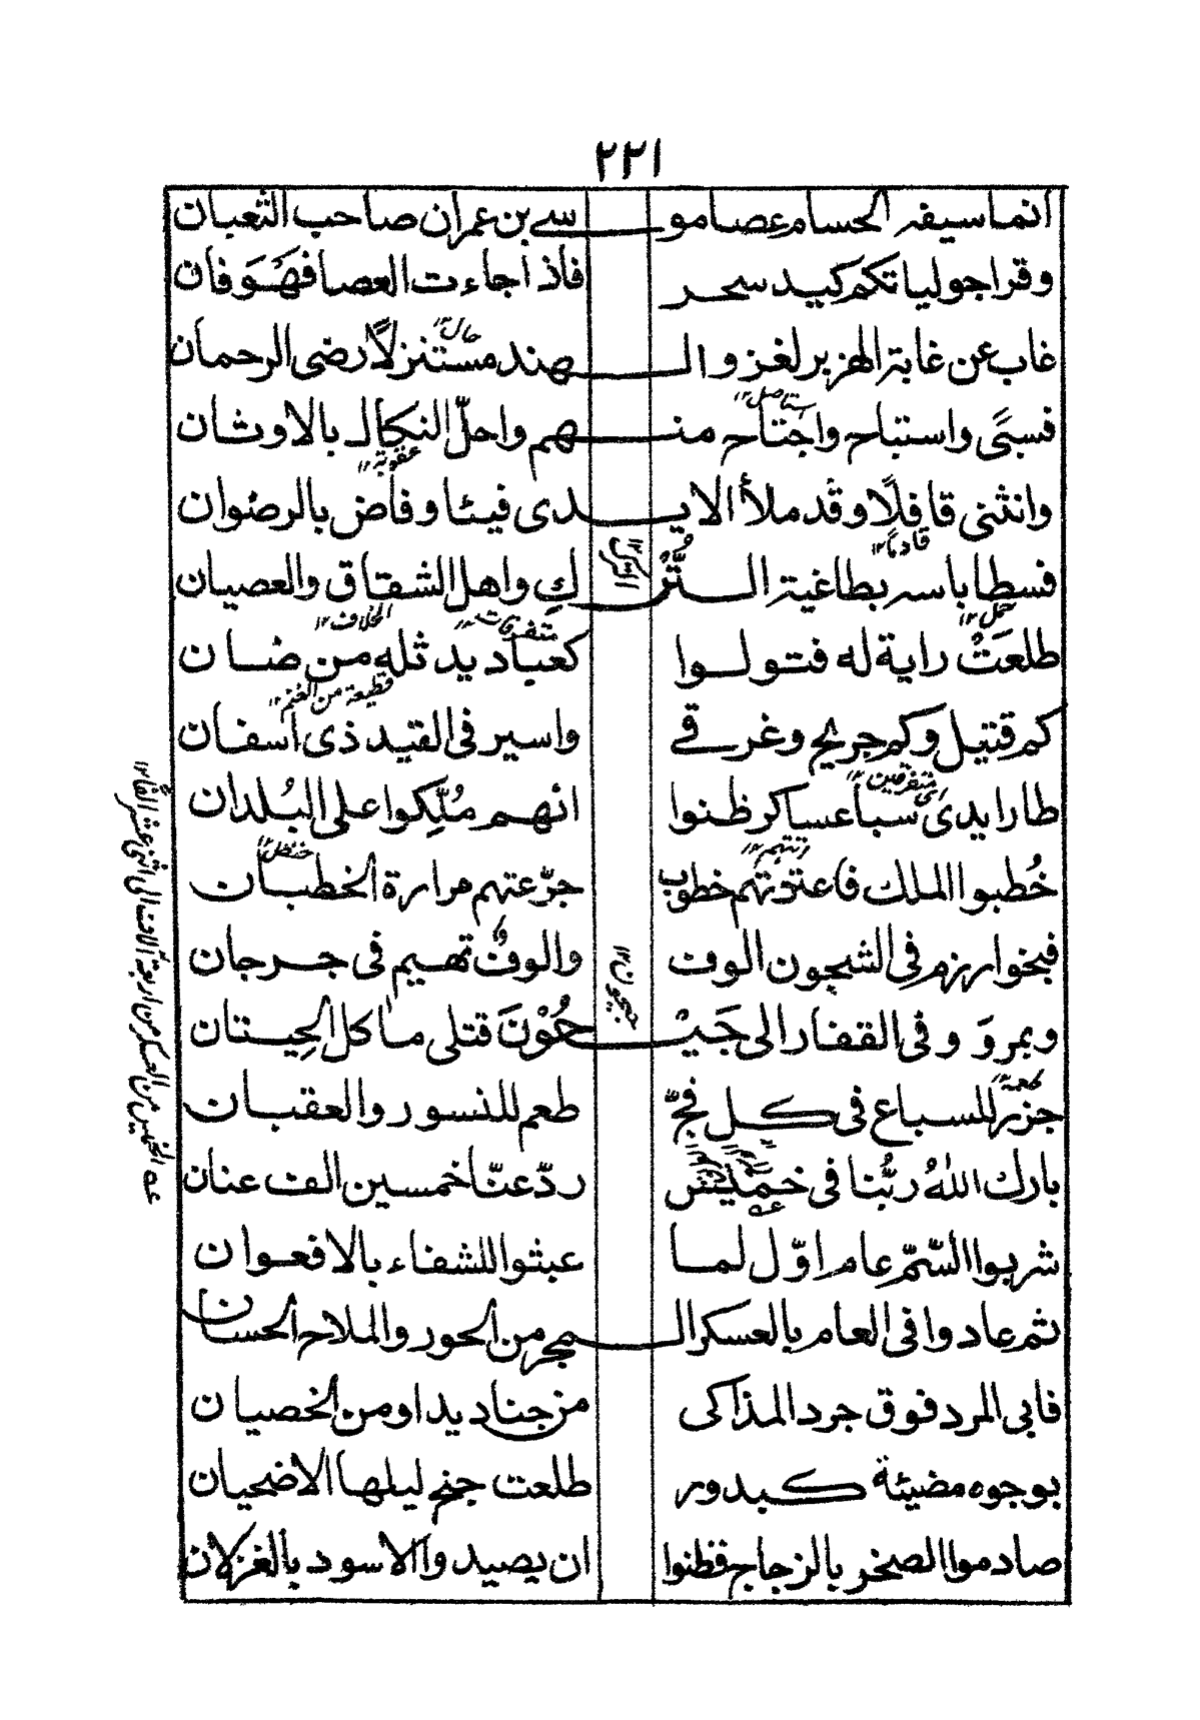 ٢٢١
انما سيفه الحسام عصا مو سے بن عمران صاحب الثعبان
وقراجوليا تكم كيد سحر فاذا جاءت العصا فهو فان
غاب عن غابة الهزبر لغزو ال هند مستنزلًا رضى الرحمان
حال١٢
فسبَى واستباح واجتاح من هم واحلّ النكال بالاوثان
يستاصل١٢
عقوبة١٢
وانثنى قافلًا وقد ملأ الاي دى فيئا وفاض بالرضوان
قادمًا١٢
فسطا باسه بطاغية التُّر كِ واهل الشقاق والعصيان
الترك١٢
حمل١٢
الخلاف١٢
طلعَتْ راية له فتولوا كعباديد ثلة من ضان
متفرقات١٢
قطيعة من الغنم١٢
كم قتيل وكم جريح وغرقے واسير فى القيد ذى اسفان
طار ايدى سبا عساكر ظنوا انهم مُلّكوا على البُلدان
اى متفرقين١٢
خُطبوا الملك فاعترتهم خطوب جرّعتهم مرارة الخطبان
حنظل١٢
فبخوارزم فى الشجون الوف والوفٌ تهيم فى جرجان
وبمرو وفى القفار الى جَيْ حُوْنَ قتلى مأكل الحِيتان
جيحون١٢
جزر للسباع فى كل فجّ طعم للنسور والعقبان
بارك اللهُ ربُّنا فى خميس ردّ عنّا خمسين الف عنان
عه
شربوا السّمّ عام اوّل لما عبثوا للشفاء بالافعوان
ثم عادوا فى العام بالعسكر ال مجر من الحور والملاح الحسان
فابى المرد فوق جرد المذاكى من جناديد او من الخصيان
بوجوه مضيئة كبدور طلعت جنح ليلها الاضحيان
صادموا الصخر بالزجاج فظنوا ان يصيد والاسود بالغزلان
عه الخميس من العسكر من اربعة آلاف الى اثنى عشر الفًا١٢